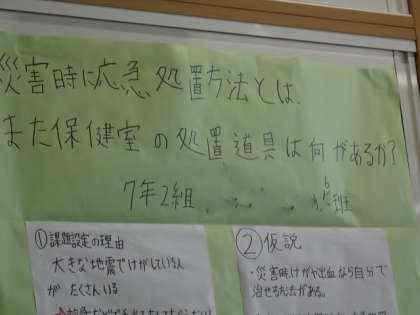 災害時に応急処置方法とは、
また保健室の処置道具は何があるか?
7年2組
6班
①課題設定の理由
大きな地震でけがしている人
がたくさんいる
②仮説
・災害時けがや出血なら自分で
治せる方法がある。